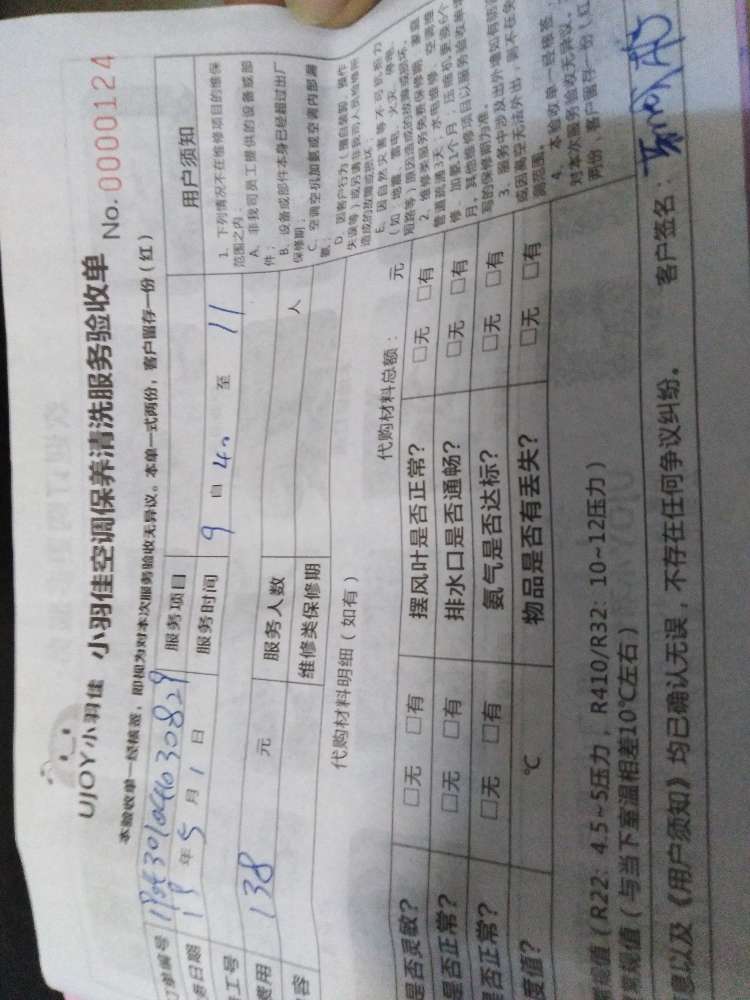 UJOY小羽佳 小羽佳空调保养清洗服务验收单 No. 0000124
本验收单一经核签，即视为对本次服务验收无异议。本单一式两份，客户留存一份（红）
单编号 服务项目 用户须知
日期 19 年 5 月 1 日 服务时间 9 自 40 至 11
工号
费用 138 元 服务人数 人
容 维修类保修期
1. 下列情况不在维修项目的维保
范围之内：
A. 非我司员工提供的设备或部
件；
B. 设备或部件本身已经超过出厂
保修期；
C. 空调空机加氨或空调内部漏
氨；
D. 因客户行为（擅自装卸、操作
失误等）或另请非我司人员检修所
造成的故障或损坏；
E. 因自然灾害等不可抗拒力
（如：地震、雷电、火灾、停电、
短路等）原因造成的故障或损坏。
2. 维修类服务免费保修期：家庭
管道疏通3天；水电维修、空调维
修、加氨1个月；压缩机更换6个
月，其他维修项目以服务验收单填
写的保修期为准。
3. 服务中涉及出外墙如有防
或因高空无法外出，则不在免
调范围。
4. 本验收单一经核签，
对本次服务验收无异议。
两份，客户留存一份（红
代购材料明细（如有） 代购材料总额： 元
是否灵敏？ □无 □有 摆风叶是否正常？ □无 □有
否正常？ □无 □有 排水口是否通畅？ □无 □有
否正常？ □无 □有 氨气是否达标？ □无 □有
度值？ ℃ 物品是否有丢失？ □无 □有
常规值（R22：4.5~5压力，R410/R32：10~12压力）
常规值（与当下室温相差10℃左右）
息以及《用户须知》均已确认无误，不存在任何争议纠纷。 客户签名：